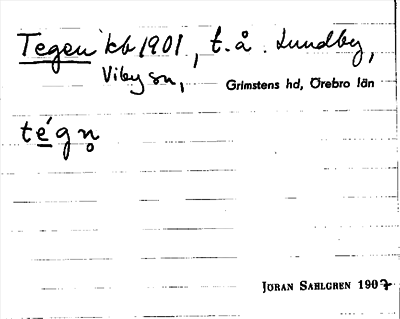 Tegen kb 1901, t. å. Lundby,
Viby sn, Grimstens hd, Örebro län
tégn̥
JÖRAN SAHLGREN 1907